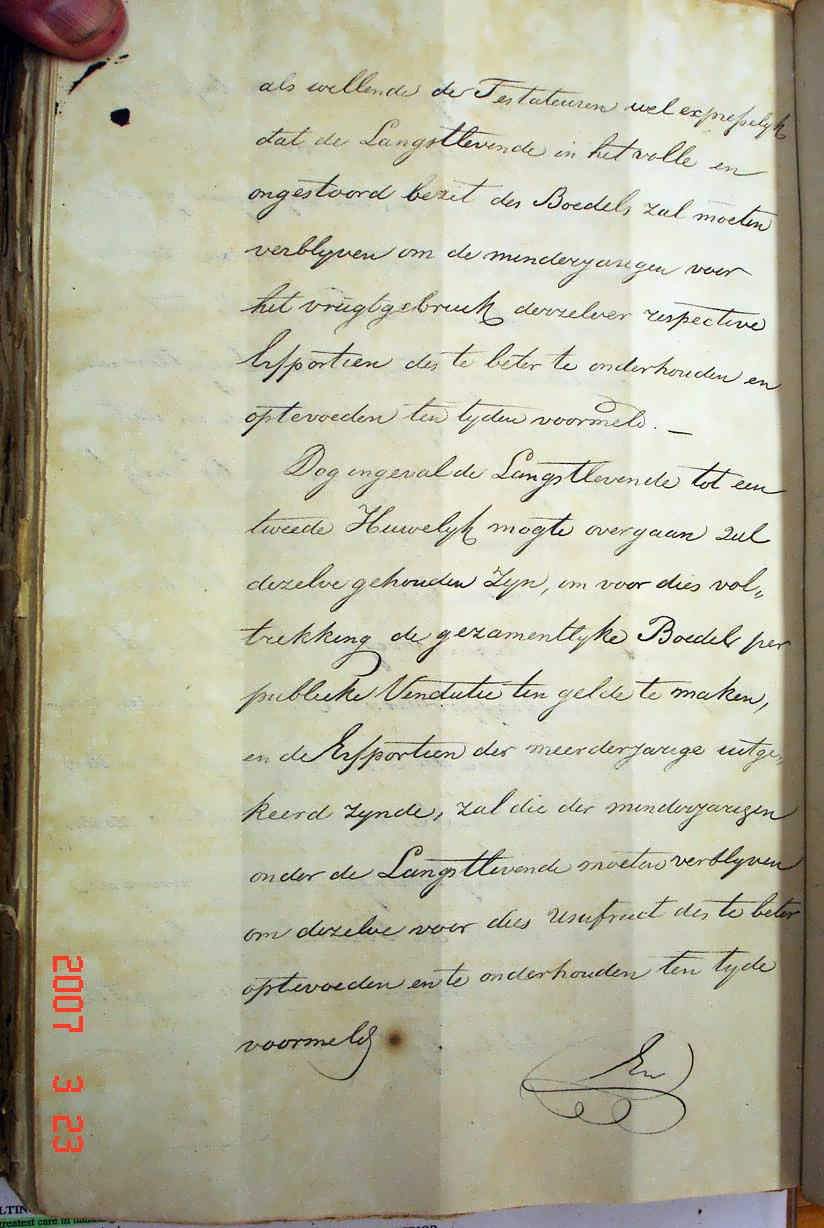 als willende de Testateuren wel expresselyk
dat de Langstlevende in het volle en
ongestoord bezit des Boedels zal moeten
verblyven om de minderjarigen voor
het vrugtgebruik derzelver respective
Erfportien des te beter te onderhouden en
optevoeden ten tyden voormeld. —
Dog ingeval de Langstlevende tot een
tweede Huwelyk mogte overgaan zal
dezelve gehouden zyn, om voor dies vol„
trekking de gezamentlyke Boedel per
publieke Vendutie ten gelde te maken,
en de Erfportien der meerderjarige uitge„
keerd zynde, zal die der minderjarigen
onder de Langstlevende moeten verblyven
om dezelve voor dies Usufruct des te beter
optevoeden en te onderhouden ten tyde
voormeld
En
2007 3 23
greatest care in